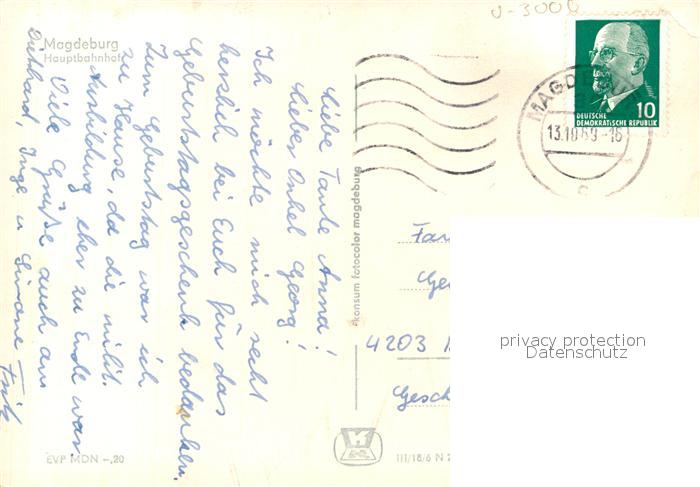 Magdeburg
Hauptbahnhof
Liebe Tante Anna!
Lieber Onkel Georg!
Ich möchte mich recht
herzlich bei Euch für das
Geburtstagsgeschenk bedanken.
Zum Geburtstag war ich
zu Hause, da die milit.
Ausbildung eher zu Ende war
Viele Grüße auch an
Diethard, Inge u Simone
Fritz
EVP MDN -,20
konsum fotocolor magdeburg
III/18/6 N
MAGDE
13.10.69-16
c
10
DEUTSCHE
DEMOKRATISCHE REPUBLIK
4203
privacy protection
Datenschutz